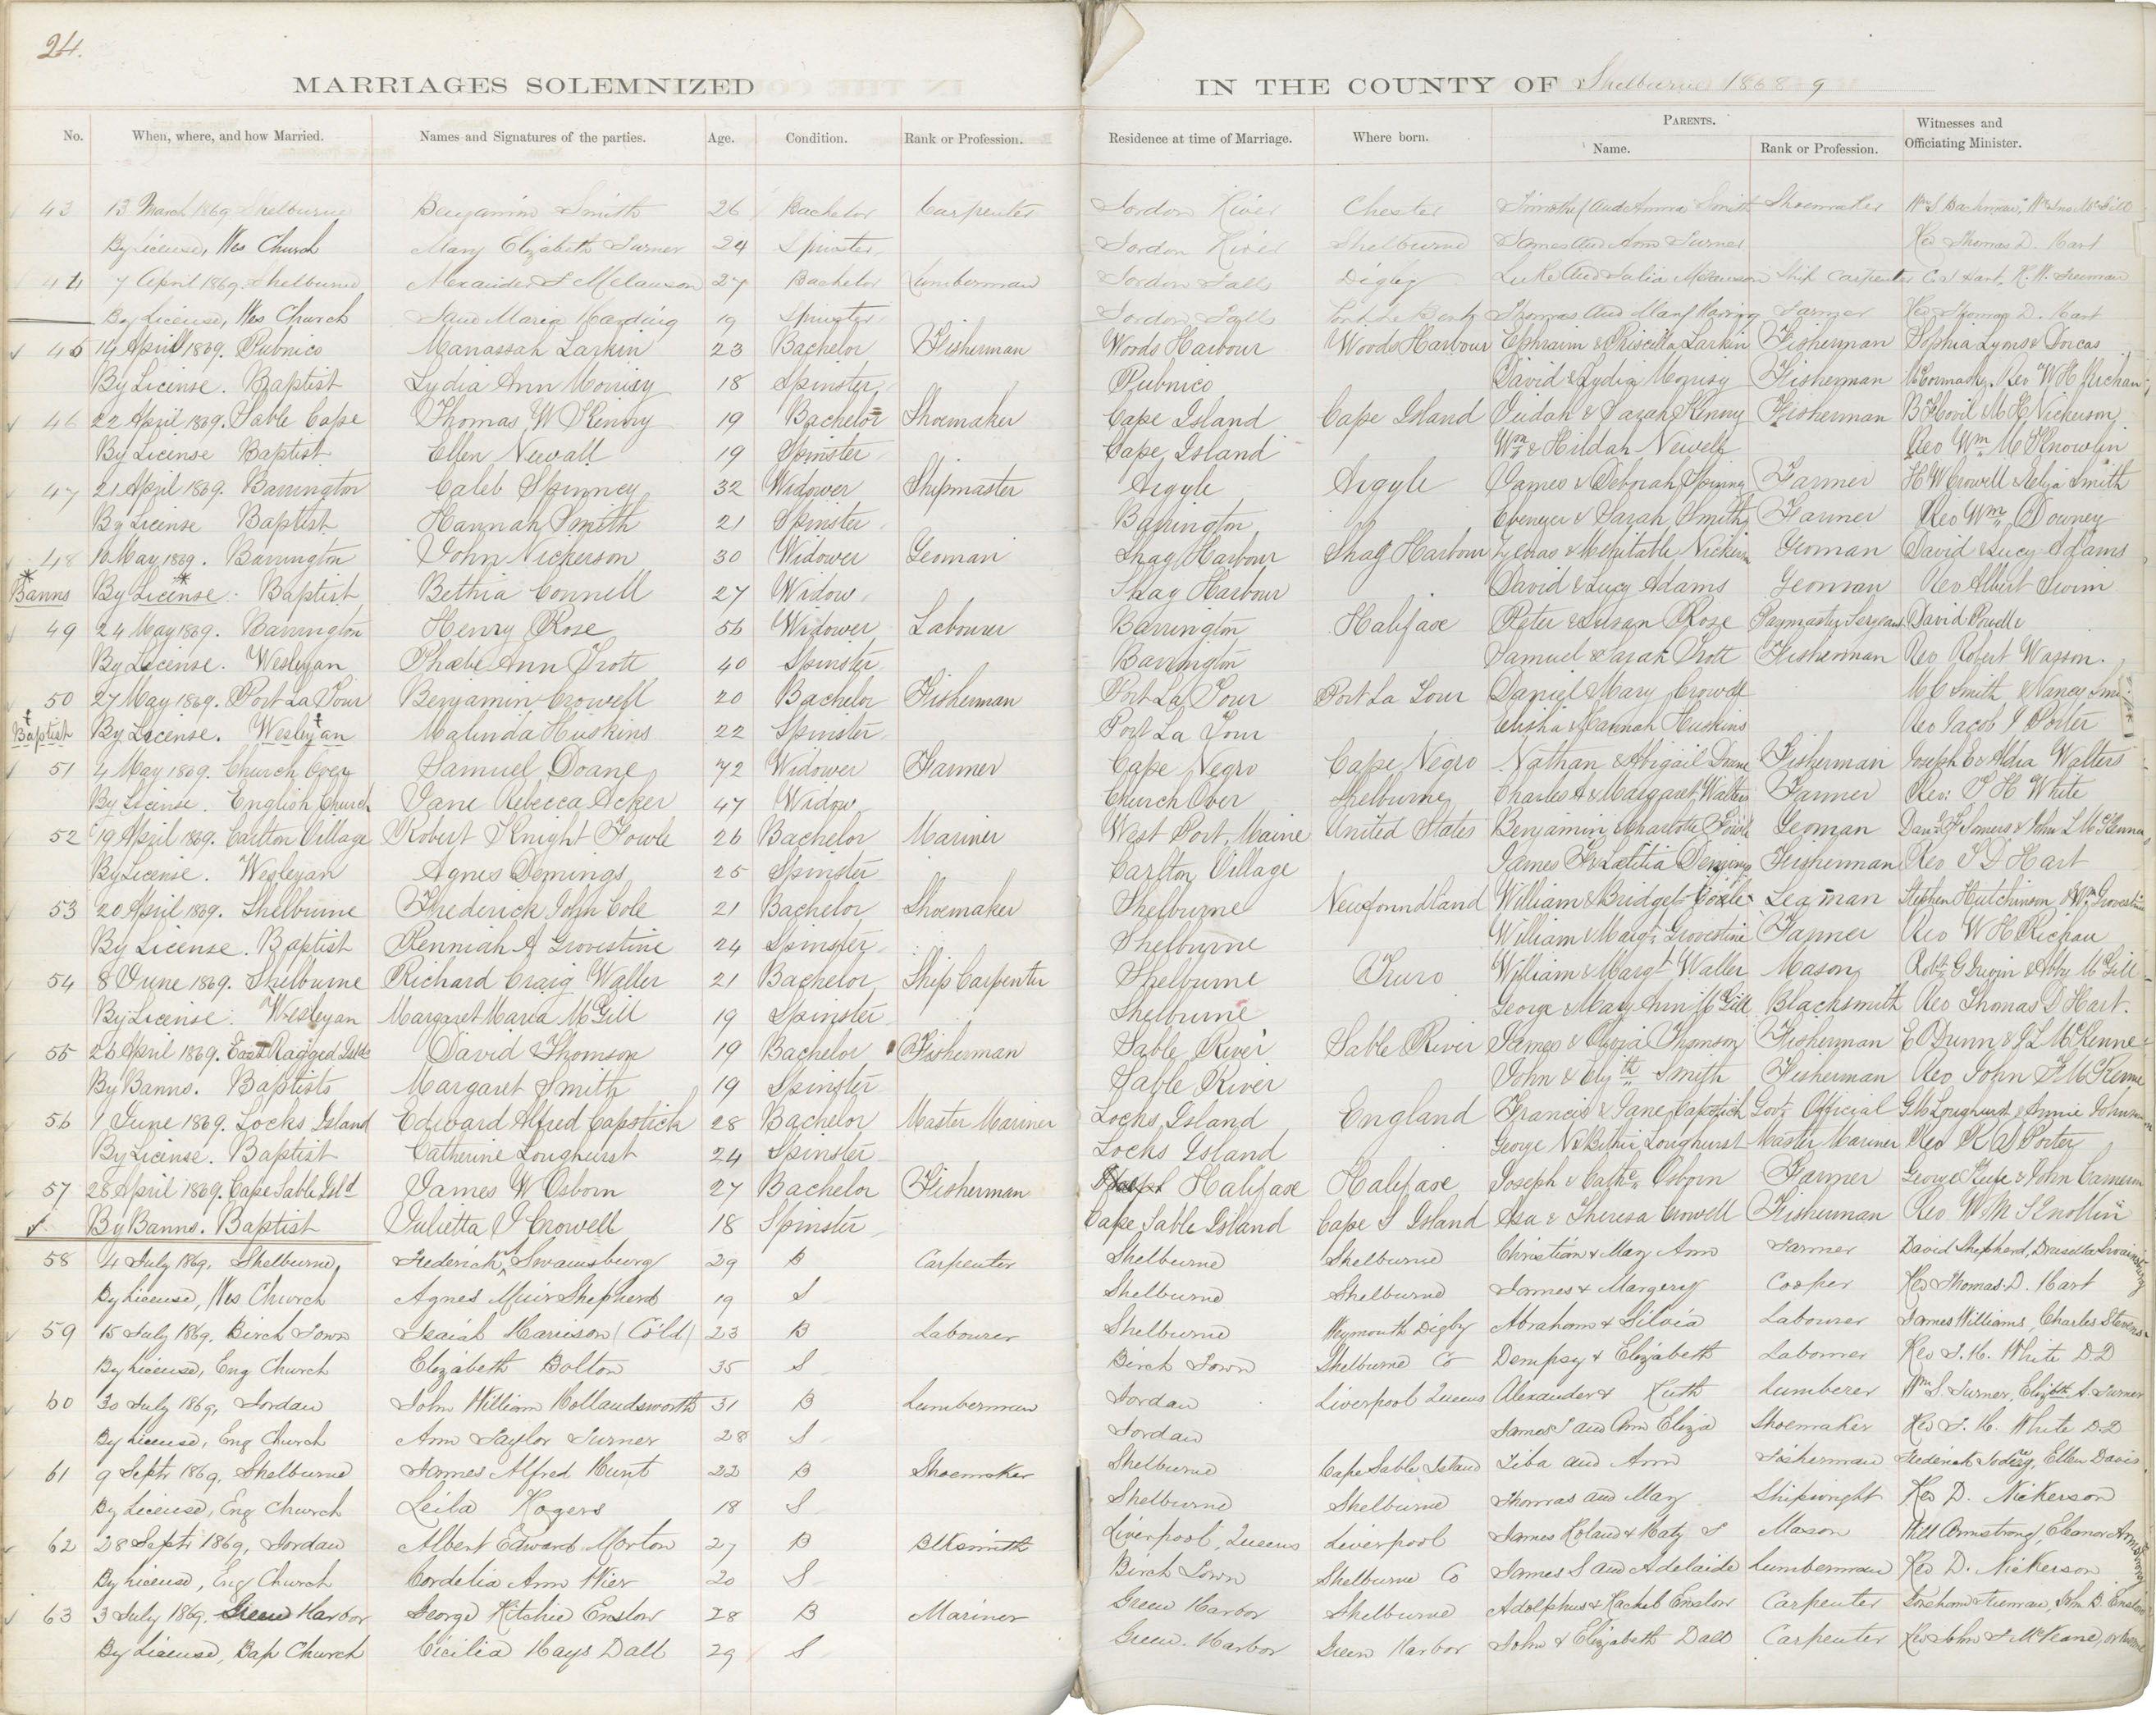 24.
MARRIAGES SOLEMNIZED IN THE COUNTY OF Shelburne 1868-9
No. When, where, and how Married. Names and Signatures of the parties. Age. Condition. Rank or Profession. Residence at time of Marriage. Where born. PARENTS. Name. Rank or Profession. Witnesses and Officiating Minister.
43 13 March 1869 Shelburne Benjamin Smith 26 Bachelor Carpenter Jordon River Chester Timothy and Anna Smith Shoemaker
By License, Wes Church Mary Elizabeth Turner 24 Spinster Jordon River Shelburne James and Ann Turner Rev Thomas D. Hart
44 7 April 1869, Shelburne Alexander 27 Bachelor Lumberman Jordon Falls Digby Luke and Julia Ship Carpenter
By License, Wes Church Jane Maria Harding 19 Spinster Jordon Falls Thomas and Mary Farmer Rev Thomas D. Hart
45 14 April 1869. Pubnico Manassah Larkin 23 Bachelor Fisherman Woods Harbour Woods Harbour Ephraim & Priscilla Larkin Fisherman Sophia Lyons & Dorcas
By License. Baptist Lydia Ann Morrisy 18 Spinster Pubnico David & Lydia Morrisy Fisherman Rev W H Richan
46 22 April 1869. Sable Cape Thomas W Kenny 19 Bachelor Shoemaker Cape Island Cape Island Judah & Sarah Kenny Fisherman
By License Baptist Ellen Newall 19 Spinster Cape Island Wm & Hildah Newell Rev Wm M Knowlin
47 21 April 1869. Barrington Caleb Spinney 32 Widower Shipmaster Argyle Argyle James & Deborah Spinny Farmer H W Crowell & Eliza Smith
By License Baptist Hannah Smith 21 Spinster Barrington Ebenezer & Sarah Smith Farmer Rev Wm Downey
48 16 May 1869. Barrington John Nickerson 30 Widower Yeoman Shag Harbour Shag Harbour & Mehitable Yeoman David & Lucy Adams
* Banns By License * Baptist Bethia Connell 27 Widow Shag Harbour David & Lucy Adams Yeoman Rev Albert Swim
49 24 May 1869. Barrington Henry Rose 56 Widower Labourer Barrington Halifax Peter & Susan Rose Paymaster Sergeant David Powell
By License. Wesleyan Phœbe Ann Trott 40 Spinster Barrington Samuel & Sarah Trott Fisherman Rev Robert Wasson.
50 27 May 1869. Port La Tour Benjamin Crowell 20 Bachelor Fisherman Port La Tour Port La Tour Daniel Mary Crowell M C Smith & Nancy
† Baptist By License. Wesleyan † Malinda Huskins 22 Spinster Port La Tour Elisha & Hannah Huskins Rev Jacob Porter
51 4 May 1869. Church Over Samuel Doane 72 Widower Farmer Cape Negro Cape Negro Nathan & Abigail Doane Fisherman Joseph E & Walters
By License. English Church Jane Rebecca Acker 47 Widow Church Over Shelburne Charles A & Margaret Walters Farmer Rev: T H White
52 19 April 1869. Carlton Village Robert Knight Fowle 26 Bachelor Mariner West Port, Maine United States Benjamin & Charlotte Fowle Yeoman
By License. Wesleyan Agnes Demings 25 Spinster Carlton Village James & Latitia Demings Fisherman Rev T D Hart
53 20 April 1869. Shelburne Frederick John Cole 21 Bachelor Shoemaker Shelburne Newfoundland William & Bridget Seaman Stephen Hutchinson
By License. Baptist Grovestine 24 Spinster Shelburne William & Margt Grovestine Farmer Rev W H Richan
54 8 June 1869. Shelburne Richard Craig Waller 21 Bachelor Ship Carpenter Shelburne Truro William & Margt Waller Mason Robt G Irwin & Abby McGill
By License. Wesleyan Margaret Maria McGill 19 Spinster Shelburne George & Mary Ann McGill Blacksmith Rev Thomas D Hart.
55 26 April 1869. East Ragged Isld David Thomson 19 Bachelor Fisherman Sable River Sable River James & Olivia Thomson Fisherman
By Banns. Baptists Margaret Smith 19 Spinster Sable River John & Elizth Smith Fisherman Rev John
56 1 June 1869. Locks Island Edward Alfred Capstick 28 Bachelor Master Mariner Locks Island England Francis & Jane Capstick Govt Official G W Longhurst & Annie Johnson
By License. Baptist Catherine Longhurst 24 Spinster Locks Island George Longhurst Master Mariner Rev Porter
57 28 April 1869. Cape Sable Isld James W Osborn 27 Bachelor Fisherman Halifax Halifax Joseph & Cathe Osborn Farmer
By Banns. Baptist Julietta J Crowell 18 Spinster Cape Sable Island Cape S Island Asa & Theresa Crowell Fisherman Rev W M Knollin
58 4 July 1869, Shelburne, Frederick Swansburg 29 B Carpenter Shelburne Shelburne Christian & Mary Ann Farmer David Shepherd, Drusella Swansburg
By License, Wes Church Agnes Muir Shepherd 19 S Shelburne Shelburne James & Margery Cooper Rev Thomas D. Hart
59 15 July 1869, Birch Town Isaiah Harrison (Col'd) 23 B Labourer Shelburne Weymouth Digby Abraham & Silvia Labourer James Williams, Charles Stevens
By License, Eng Church Elizabeth Bolton 35 S Birch Town Shelburne Co Dempsy & Elizabeth Labourer Rev T. H. White D.D
60 30 July 1869, Jordan John William Hollandsworth 31 B Lumberman Jordan Liverpool Queens Alexander & Ruth Lumberer Wm S Turner, Elizth A. Turner
By License, Eng Church Ann Taylor Turner 28 S Jordan James T and Ann Eliza Shoemaker Rev T. H. White D.D
61 9 Sept 1869, Shelburne James Alfred Hunt 22 B Shoemaker Shelburne Cape Sable Island Ziba and Ann Fisherman Frederick Ellen Davis
By License, Eng Church Leila Rogers 18 S Shelburne Shelburne Thomas and Mary Shipwright Rev D. Nickerson
62 28 Sept 1869, Jordan Albert Edward Morton 27 B Blksmith Liverpool, Queens Liverpool James Roland & Katy Mason Will Armstrong, Eleanor Armstrong
By License, Eng Church Cordelia Ann Wier 20 S Birch Town Shelburne Co James S and Adelaide Lumberman Rev D. Nickerson
63 3 July 1869. Green Harbor George Ritchie Enslow 28 B Mariner Green Harbor Shelburne Adolphus & Rachel Enslow Carpenter John B. Enslow
By License, Bap Church Cicilia Hays Dall 29 S Green Harbor Green Harbor John & Elizabeth Dall Carpenter Rev John